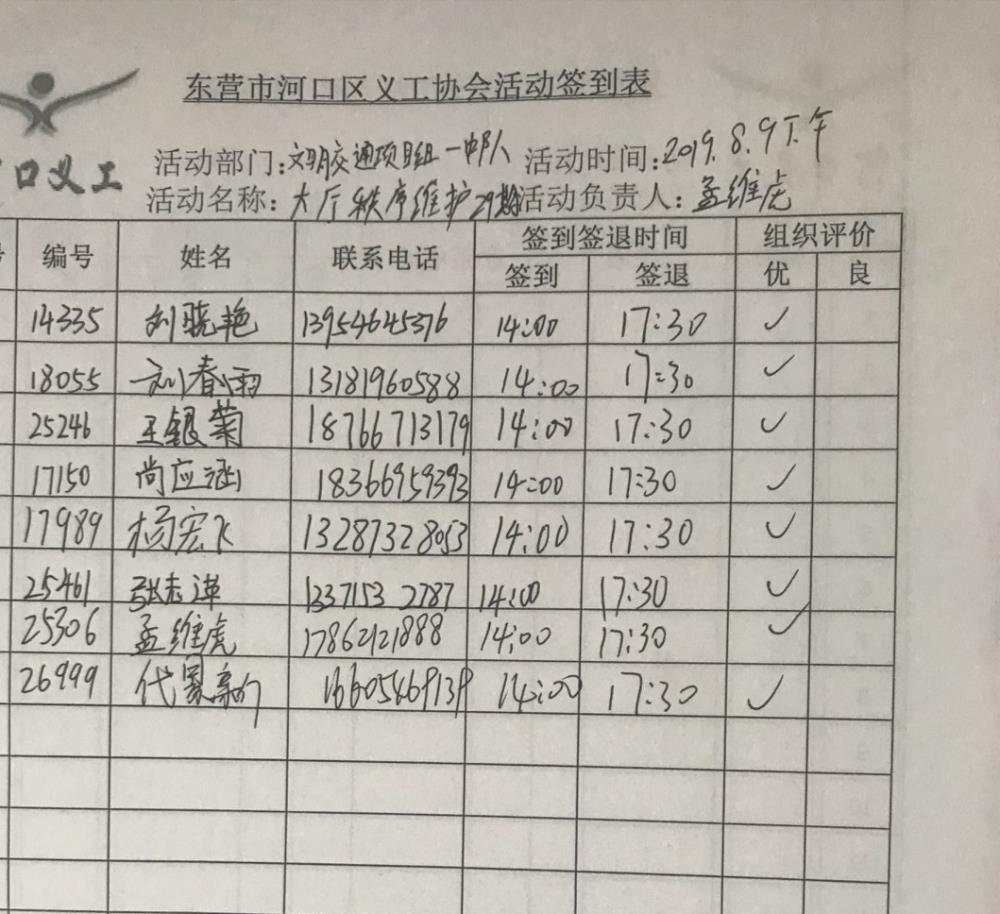 东营市河口区义工协会活动签到表
口义工
活动部门：文明交通项目组一中队 活动时间：2019.8.9下午
活动名称：大厅秩序维护29期 活动负责人：孟维虎
编号 姓名 联系电话 签到签退时间 组织评价
签到 签退 优 良
14335 刘骁艳 13954645376 14:00 17:30 ✓
18055 刘春雨 13181960588 14:00 17:30 ✓
25246 王银菊 18766713179 14:00 17:30 ✓
17150 尚应涵 18366959393 14:00 17:30 ✓
17989 杨宏飞 13287328053 14:00 17:30 ✓
25461 张志洋 13371532787 14:00 17:30 ✓
25306 孟维虎 17862121888 14:00 17:30 ✓
26999 代新 16605469139 14:00 17:30 ✓